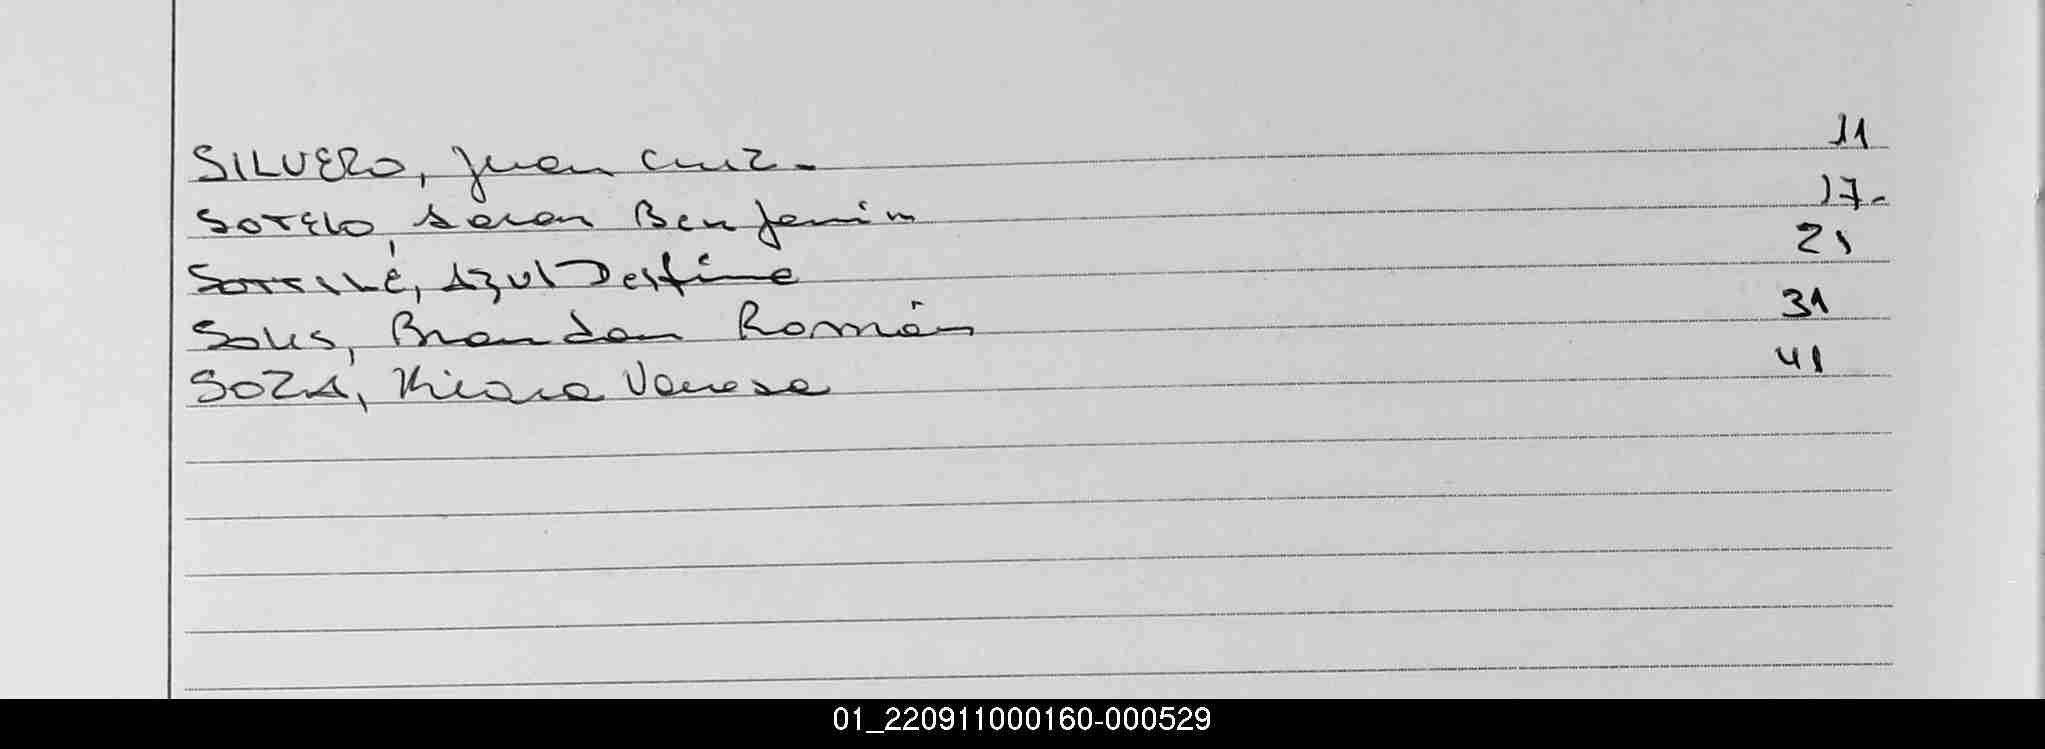 SILVERO, Juan Cruz - 11
SOTELO, Aaron Benjamin 17-
SOTTILE, Azul Delfina 21
SOLIS, Brandon Román 31
SOZA, Kiara Vanesa 41
01_220911000160-000529